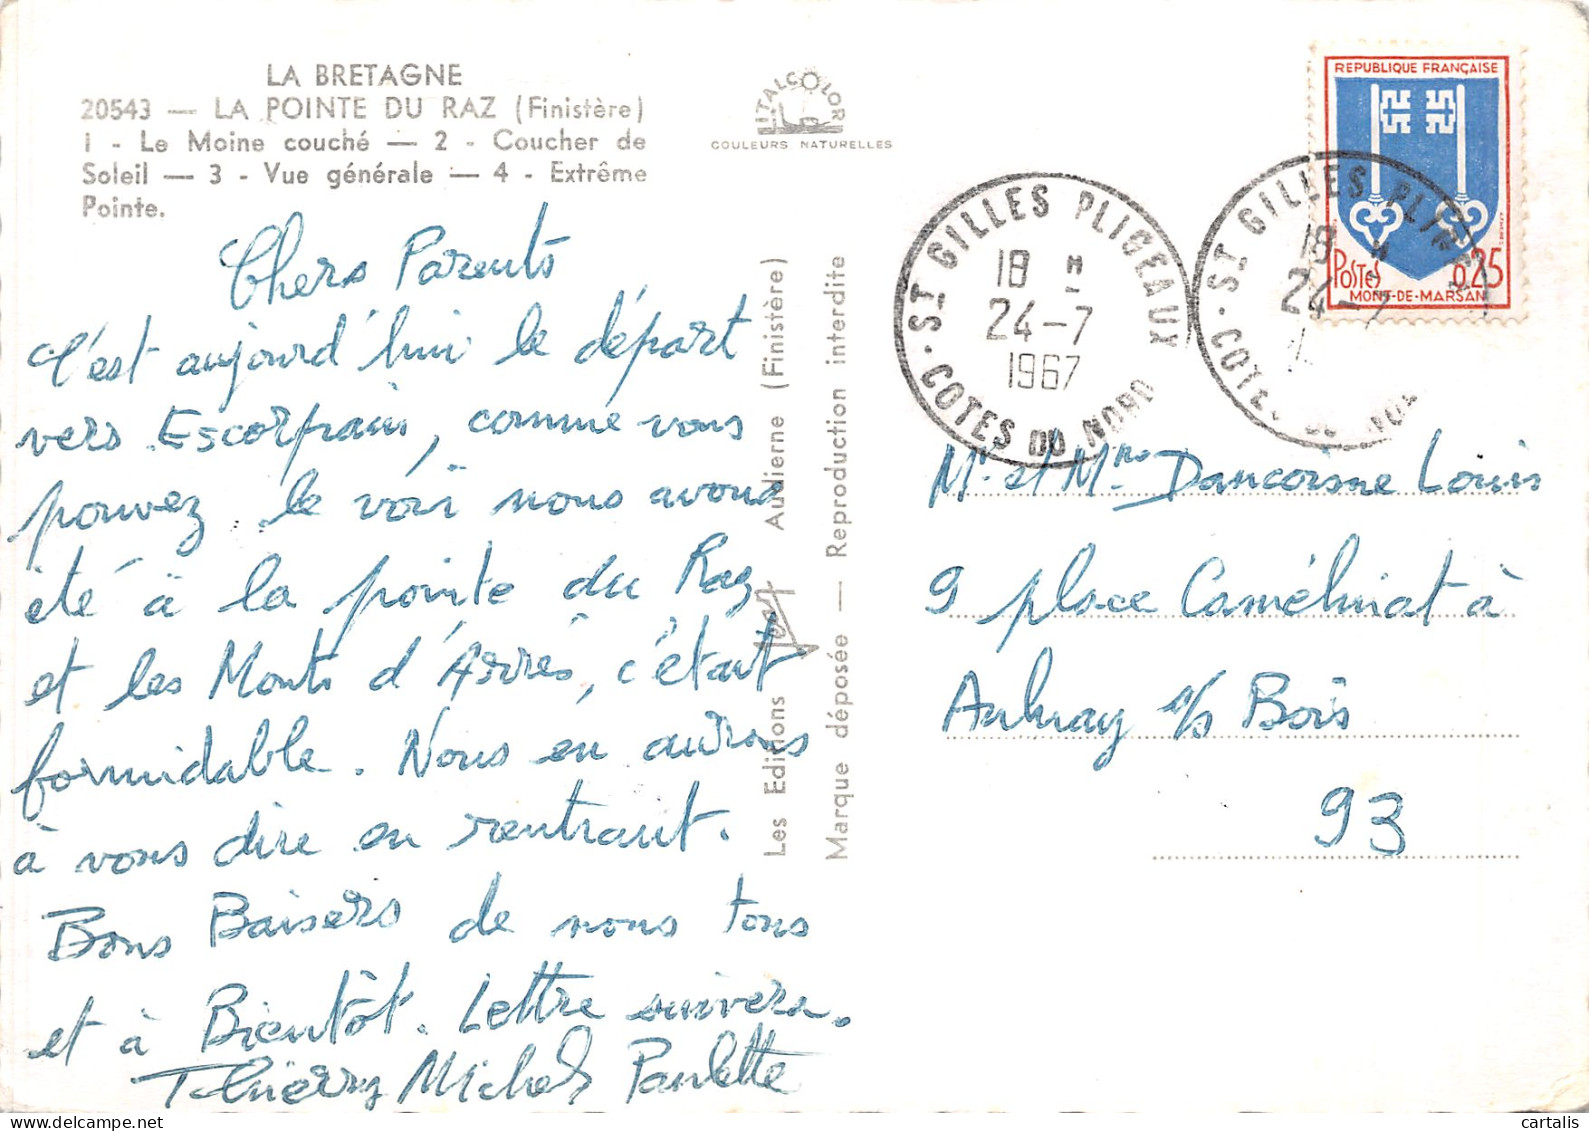 LA BRETAGNE
20543 — LA POINTE DU RAZ (Finistère)
1 - Le Moine couché — 2 - Coucher de
Soleil — 3 - Vue générale — 4 - Extrême
Pointe.
ITALCOLOR
COULEURS NATURELLES
Chers Parents
C'est aujourd'hui le départ
vers Escorpain, comme vous
pouvez le voir nous avons
été à la pointe du Raz
et les Monts d'Arrés, c'était
formidable. Nous en aurons
à vous dire en rentrant.
Bons Baisers de nous tous
et à Bientôt. Lettre suivera.
Thierry Michel Paulette
Les Editions Jos Audierne (Finistère)
Marque déposée — Reproduction interdite
ST GILLES PLIGEAUX
18 H
24-7
1967
COTES DU NORD
ST GILLES
18 H
24-7
REPUBLIQUE FRANÇAISE
POSTES 0,25
MONT-DE-MARSAN
Mr et Mme Dancoisne Louis
9 place Camélinat à
Aulnay s/s Bois
93
cartalis